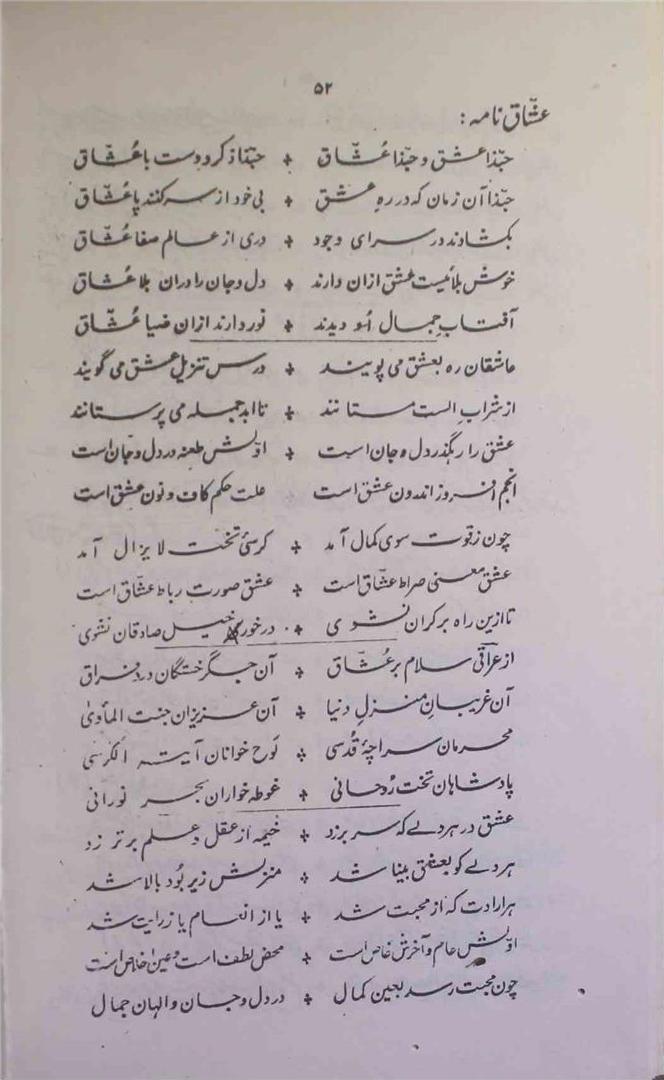 ۵۲
عشّاق نامہ :
حبّذا عشق و حبّذا عُشّاق ٭ حبّذا ذکر دوست با عُشّاق
حبّذا آن زمان که در رہِ عشق ٭ بی خود از سر کنند پا عُشّاق
بکشاوند در سرای وجود ٭ دری از عالم صفا عُشّاق
خوش بلائیست عشق ازان دارند ٭ دل و جان را دران بلا عُشّاق
آفتابِ جمال اُو دیدند ٭ نور دارند ازان ضیا عُشّاق
عاشقان ره بعشق می پویند ٭ درس تنزیل عشق می گویند
از شرابِ الست مستانند ٭ تا ابد جمله می پرستانند
عشق را رہگذر دل و جان است ٭ اوّلش طعنه در دل و جان است
انجم افروز اندرون عشق است ٭ علت حکم کاف و نون عشق است
چون ز قوت سوی کمال آمد ٭ کرسیٔ تخت لایزال آمد
عشق معنی صراط عشّاق است ٭ عشق صورت رباط عشّاق است
تا ازین راه بر کران نشوی ٭ در خور خیل صادقان نشوی
از عراقی سلام بر عُشّاق ٭ آن جگر خستگان درد فراق
آن غریبانِ منزلِ دنیا ٭ آن عزیزان جنت المأویٰ
محرمان سراچهٔ قُدسی ٭ لَوح خوانان آیتہ الکرسی
پادشاہان تخت رُوحانی ٭ غوطه خواران بحر نورانی
عشق در ہر دلے که سر بر زد ٭ خیمه از عقل و علم برتر زد
ہر دلے کو بعشق بینا شد ٭ منزلش زیر بُود بالا شد
ہر ارادت که از محبت شد ٭ یا از انعام یا ز رایت شد
اوّلش عام و آخرش خاص است ٭ محض لطف است و عین اخلاص است
چون محبت رسد بعین کمال ٭ در دل و جان والہان جمال